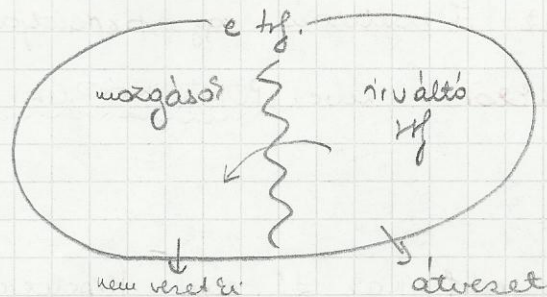 e trf.
mozgások
síkváltó
trf
nem vezet ki
átvezet